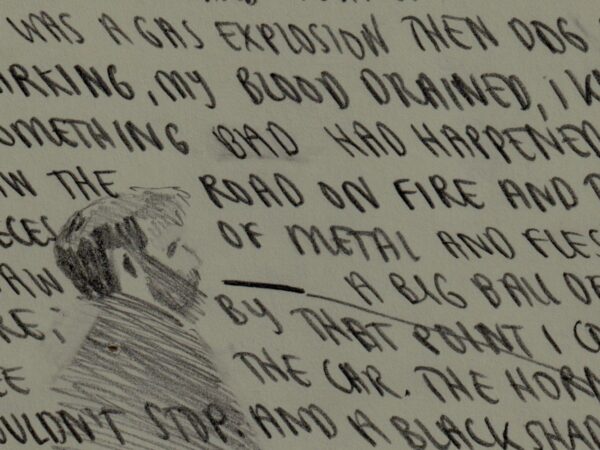 WAS A GAS EXPLOSION THEN DOG
ARKING, MY BLOOD DRAINED, I K
OMETHING BAD HAD HAPPENED
AW THE ROAD ON FIRE AND
ECES OF METAL AND FLES
AW A BIG BALL OF
RE; BY THAT POINT I CO
EE THE CAR. THE HORN
OULDN'T STOP. AND A BLACK SHAD